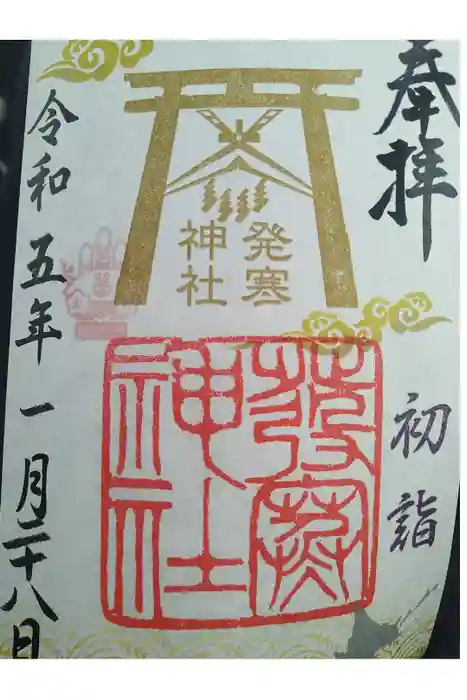 奉拝
初詣
発寒
神社
發寒
神社
令和五年一月二十八日